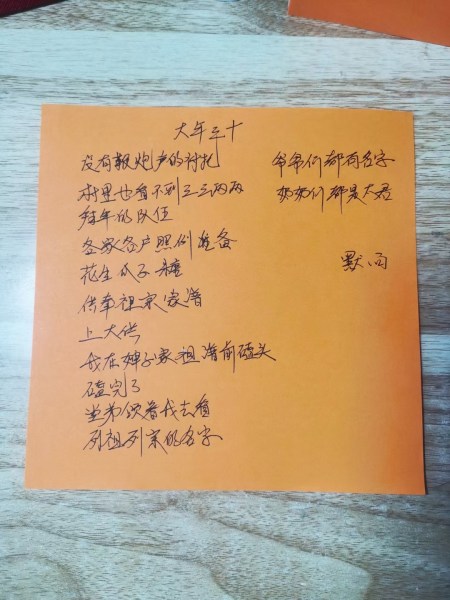 大年三十
没有鞭炮声的衬托
村里也看不到三三两两
拜年的队伍
各家各户照例准备
花生瓜子 糖
供奉祖宗家谱
上大供
我在婶子家祖谱前磕头
磕完了
堂弟领着我去看
列祖列宗的名字
爷爷们都有名字
奶奶们都是太君
默雨